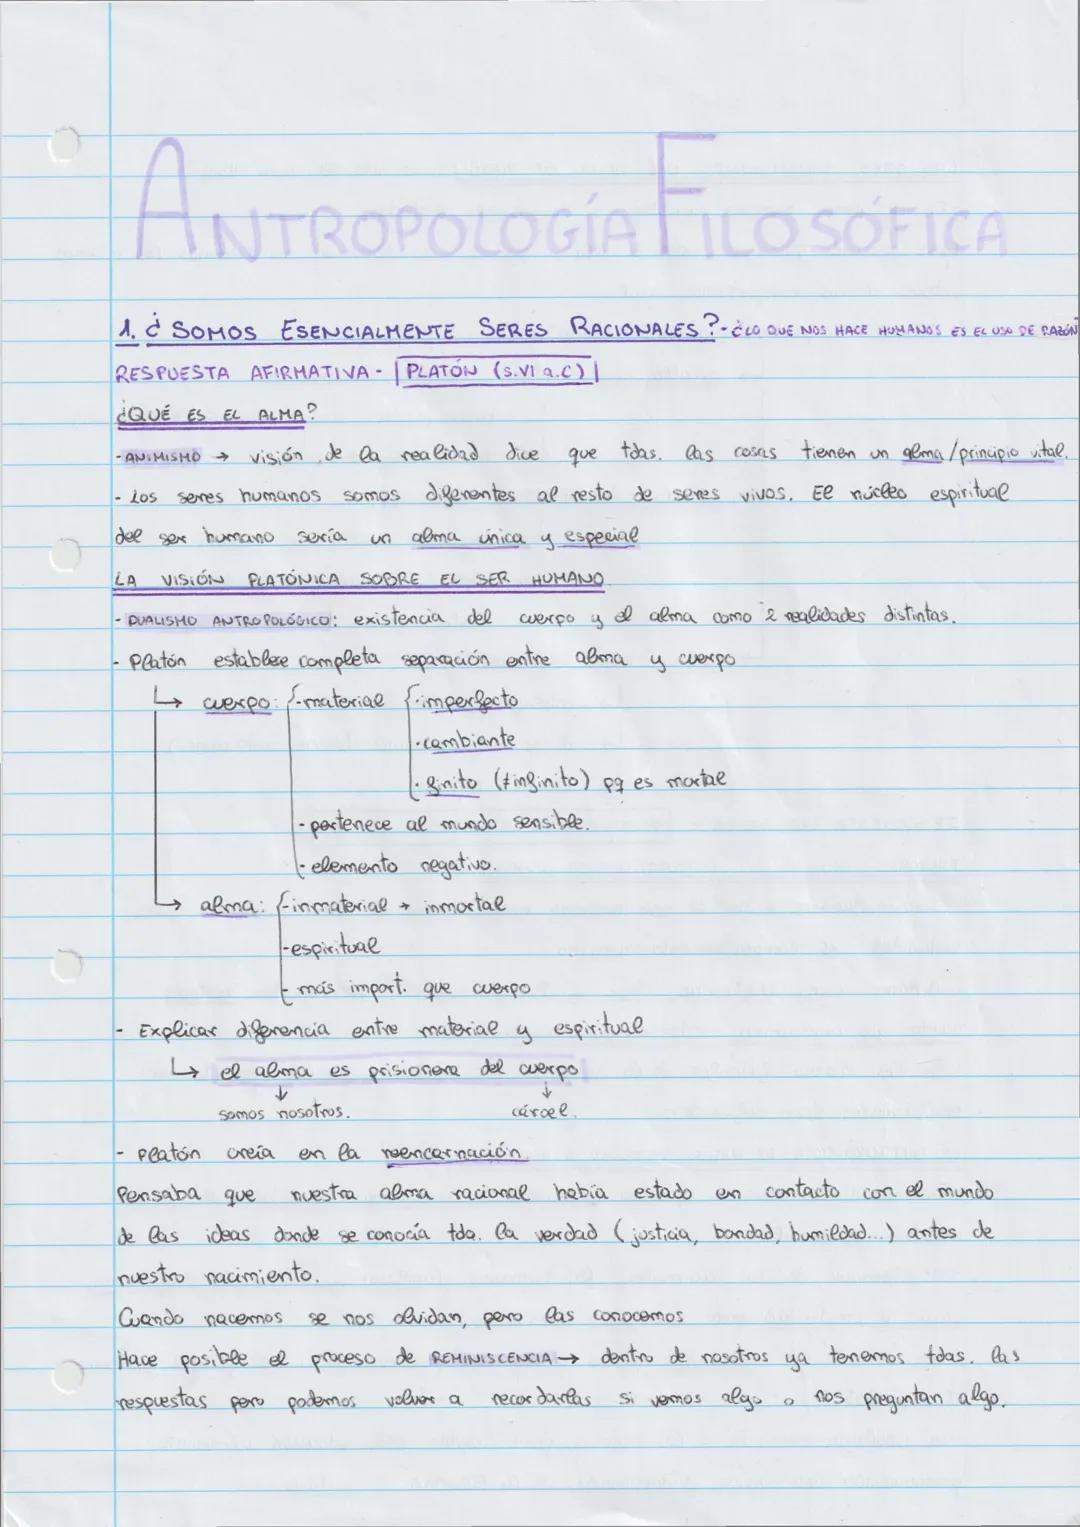 ANTROPOLOGÍA FILOSÓFICA
1. ¿SOMOS ESENCIALMENTE SERES RACIONALES?-¿LO QUE NOS HACE HUMANOS ES EL USO DE RAZÓN
RESPUESTA AFIRMATIVA- PLATÓN (s.VI a.C)
¿QUÉ ES EL ALMA?
-ANIMISMO → visión de la realidad dice que tdas. las cosas tienen un alma/principio vital.
- Los seres humanos somos diferentes al resto de seres vivos. El núcleo espiritual
del ser humano sería un alma única y especial
LA VISIÓN PLATÓNICA SOBRE EL SER HUMANO
- DUALISMO ANTROPOLÓGICO: existencia del cuerpo y el alma como 2 realidades distintas.
- Platón establece completa separación entre alma y cuerpo
↳ cuerpo: {-material {·imperfecto
·cambiante
· finito (≠infinito) pq es mortal
- pertenece al mundo sensible.
- elemento negativo.
↳ alma: {-inmaterial → inmortal
-espiritual
- más import. que cuerpo
- Explicar diferencia entre material y espiritual
↳ el alma es prisionera del cuerpo
↓ ↓
somos nosotros. cárcel.
- Platón creía en la reencarnación.
Pensaba que nuestra alma racional había estado en contacto con el mundo
de las ideas donde se conocía tda. la verdad (justicia, bondad, humildad...) antes de
nuestro nacimiento.
Cuando nacemos se nos olvidan, pero las conocemos
Hace posible el proceso de REMINISCENCIA → dentro de nosotros ya tenemos tdas. las
respuestas pero podemos volver a recordarlas si vemos algo o nos preguntan algo.